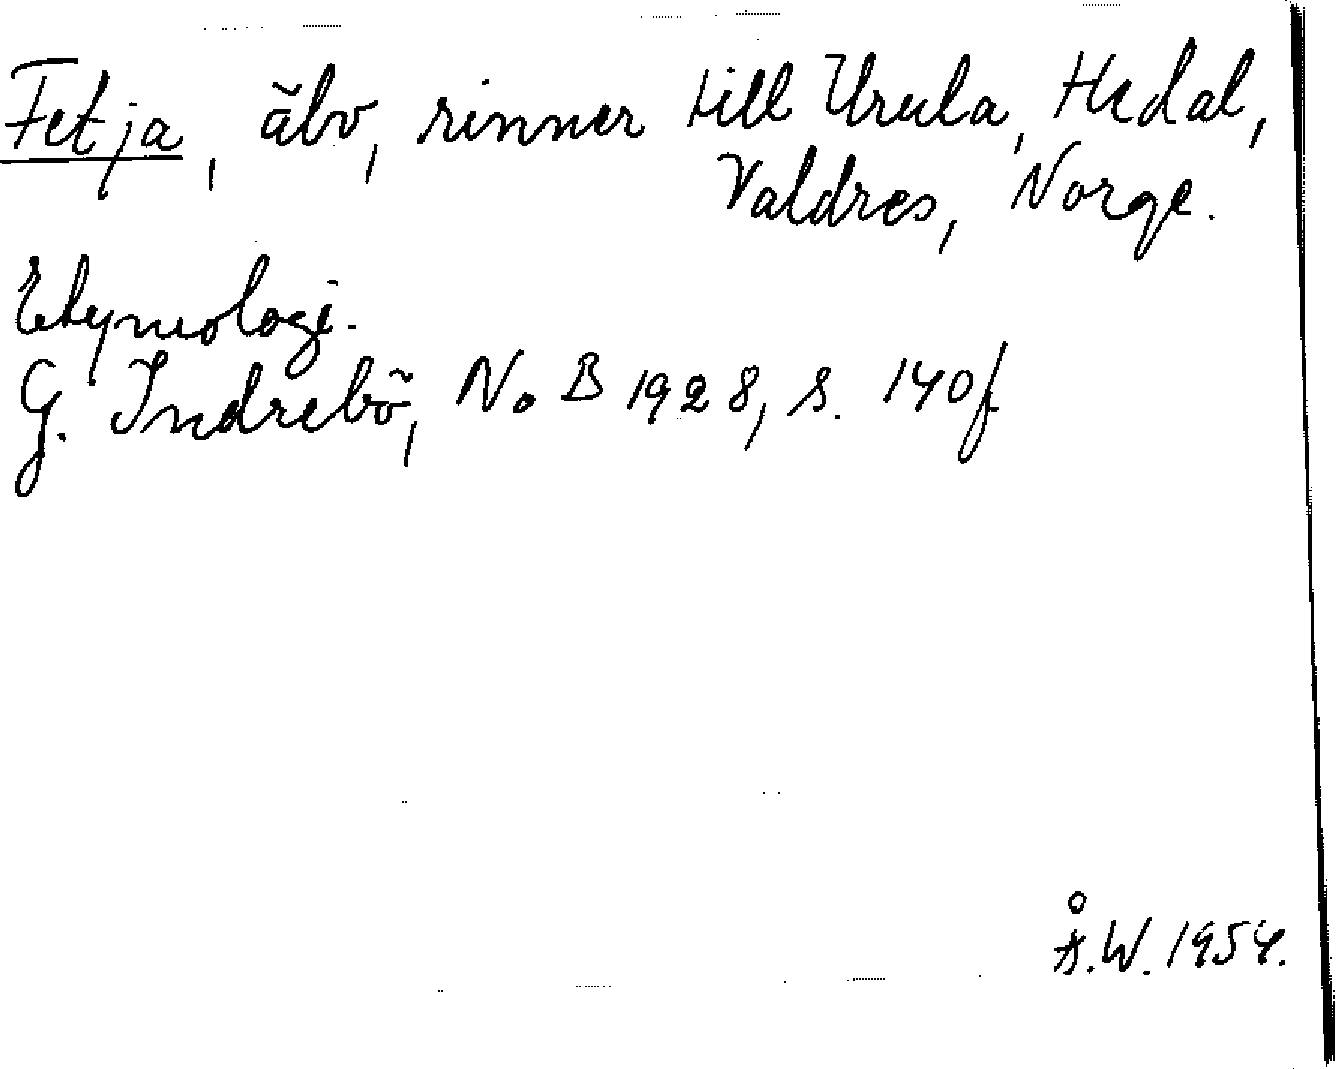 Fetja, älv, rinner till Urula, Hedal,
Valdres, Norge.
Etymologi.
G. Indrebö, NoB 1928, s. 140f
Å.W. 1954.